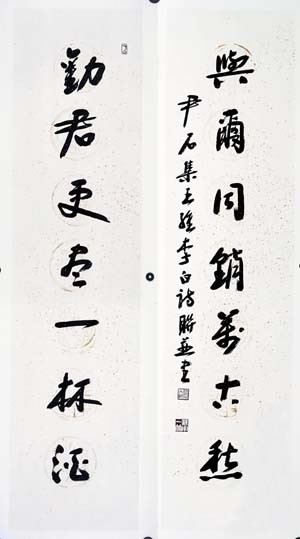 與爾同銷萬古愁
尹石集王維李白詩聯並書
勸君更盡一杯酒